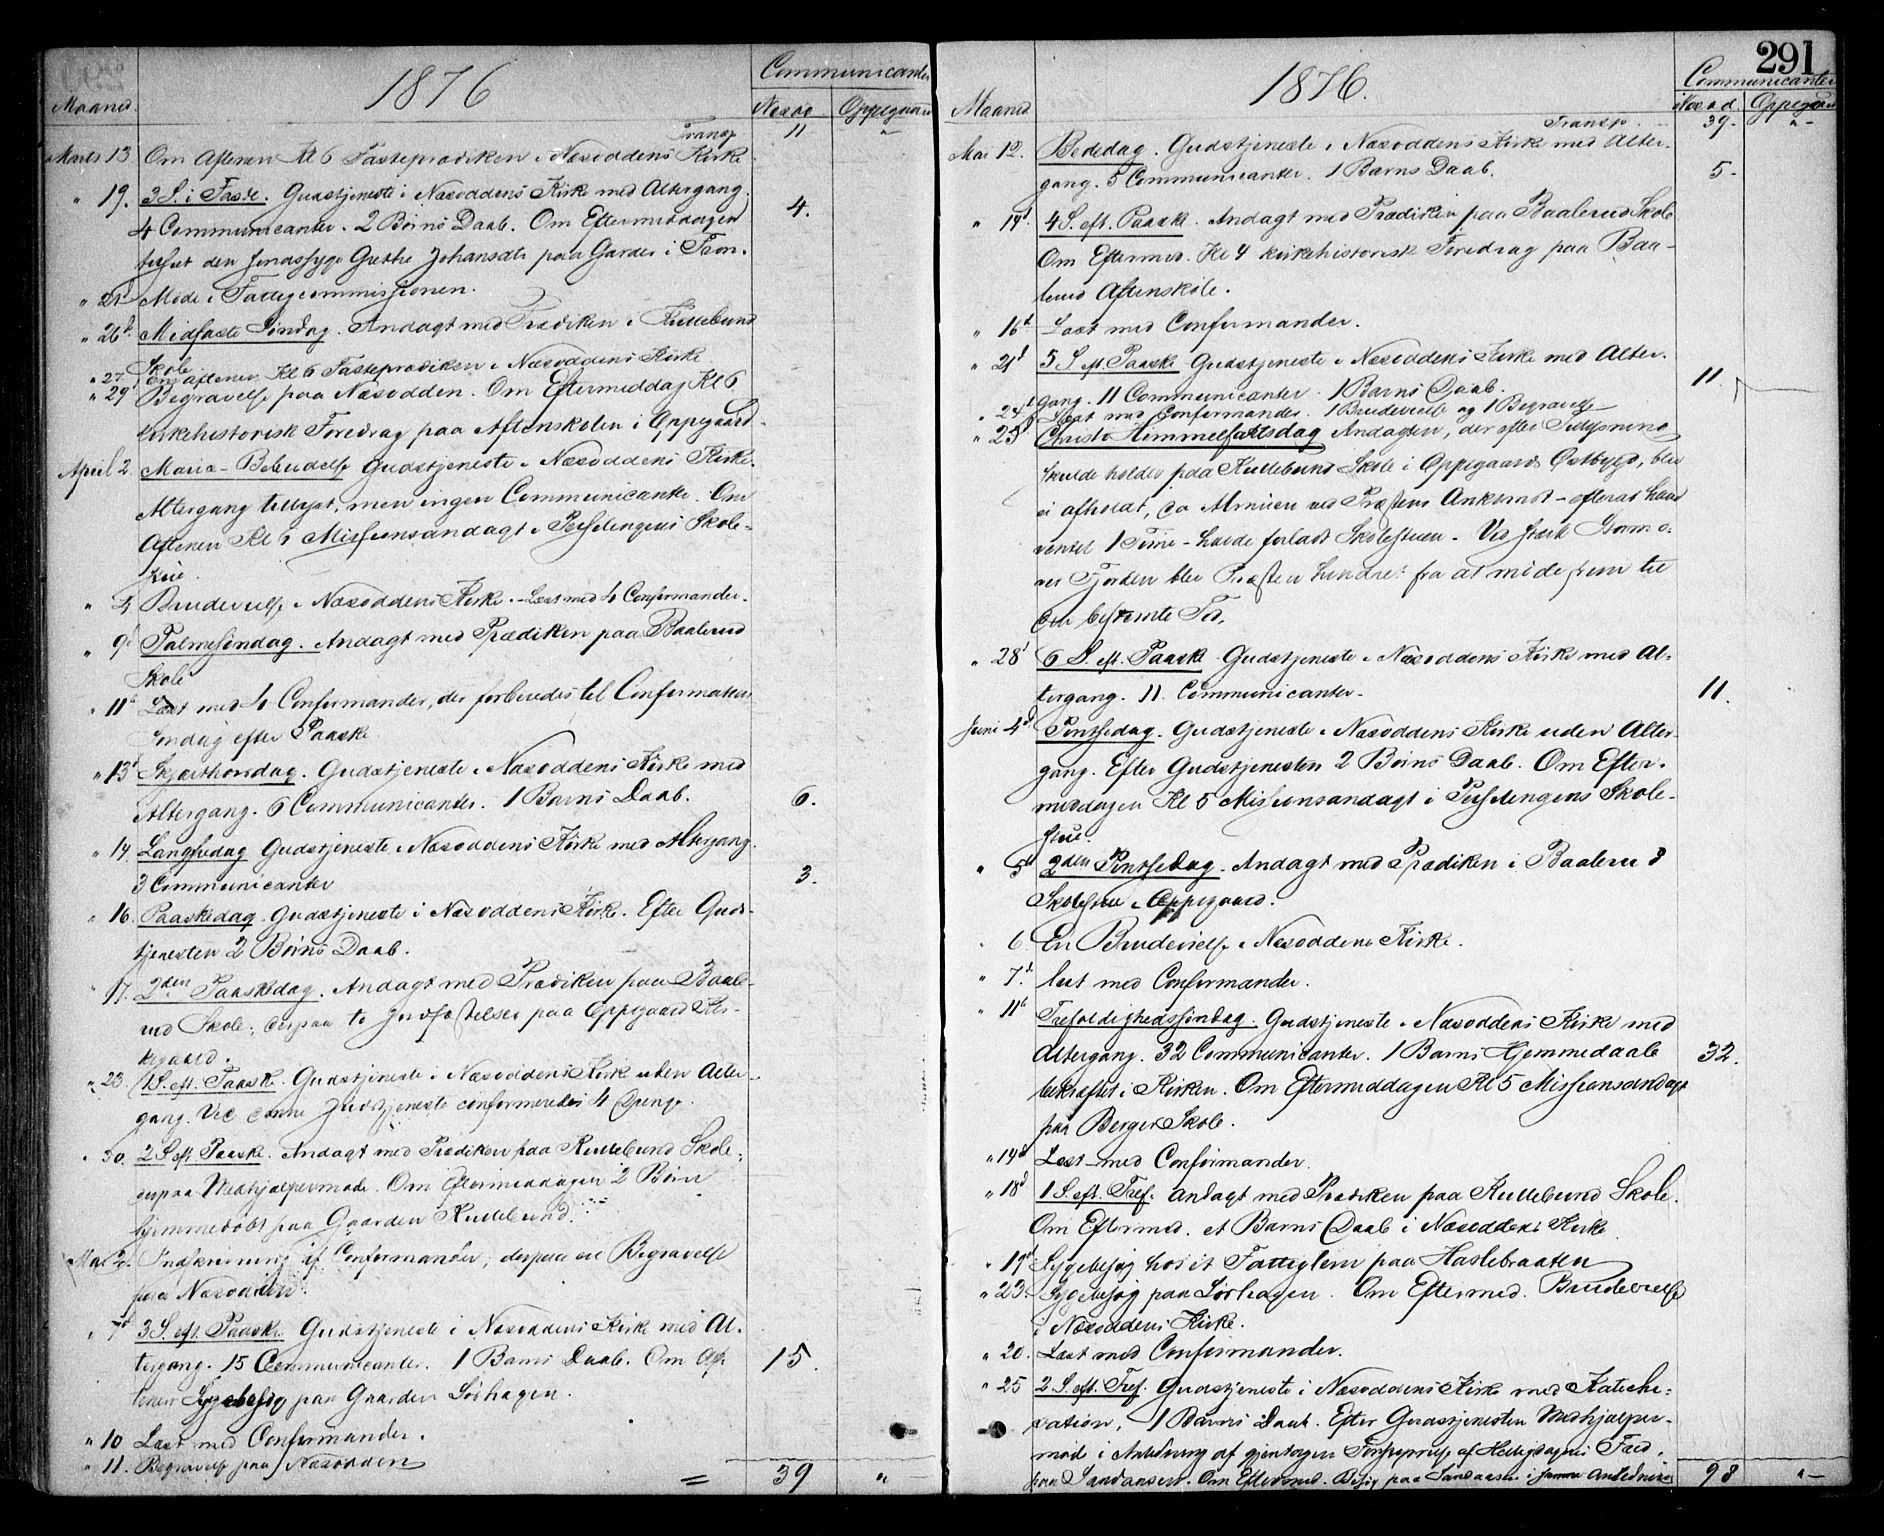 1876
Communicanter
Maaned
Næsod
Oppegaard
Transp. 11 "
Marts 13. Om Aftenen Kl 6 Fasteprædiken i Næsoddens Kirke
" 19. 3 S. i Faste. Gudstjeneste i Næsoddens Kirke med Altergang.
4 Communicanter. 2 Børns Daab. Om Eftermiddagen 4.
den sindssyge Grethe Johansdtr paa Garder i
" Møde i Fattigcommissionen.
" 26d Midfaste Søndag. Andagt med Prædiken i Kullebund
Skole
" 27 Om Aftenen Kl 6 Fasteprædiken i Næsoddens Kirke
" 29 Begravelse paa Næsodden. Om Eftermiddag Kl 6
kirkehistorisk Foredrag paa Aftenskolen i Oppegaard.
April 2. Maria-Bebudelse Gudstjeneste i Næsoddens Kirke.
Altergang tillyst, men ingen Communicanter. Om
Aftenen Kl Missionsandagt i Præstengens Skole-
stue.
" 4 Brudevielse i Næsoddens Kirke. - Læst med 4 Confirmander.
" 9d Palmesøndag. Andagt med Prædiken paa Baalerud
Skole
" 11d Læst med 4 Confirmander, der forberedes til Confirmation
Søndag efter Paaske.
" 13d Skjærthorsdag. Gudstjeneste i Næsoddens Kirke med
Altergang. 6 Communicanter. 1 Barns Daab. 6.
" 14. Langfredag Gudstjeneste i Næsoddens Kirke med Altergang.
3 Communicanter 3.
" 16. Paaskedag. Gudstjeneste i Næsoddens Kirke. Efter Guds-
tjenesten 2 Børns Daab.
" 17. 2den Paaskedag. Andagt med Prædiken paa Baale-
rud Skole; derpaa to Jordfæstelser paa Oppegaard Kir-
kegaard.
" 23. 1 S. eft. Paaske. Gudstjeneste i Næsoddens Kirke uden Alter-
gang. Ved denne Gudstjeneste confirmeredes 4 Drenge.
" 30. 2 S. eft. Paaske. Andagt med Prædiken paa Kullebund Skole;
derpaa Medhjælpermøde. Om Eftermiddagen 2 Børn
hjemmedøbt paa Gaarden Kullebund.
Mai 2. Indskrivning af Confirmander; derpaa en Begravelse
paa Næsodden.
" 7d 3 S. eft. Paaske. Gudstjeneste i Næsoddens Kirke med Al-
tergang. 15 Communicanter. 1 Barns Daab. Om Af- 15.
tenen Sygebesøg paa Gaarden Sørhagen.
" 10 Læst med Confirmander.
" 11. Begravelse paa Næsodden
= 39 "
291
1876.
Communicanter
Maaned
Næsod.
Oppegaard
Transp. 39. "
Mai 12. Bededag. Gudstjeneste i Næsoddens Kirke med Alter-
gang. 5 Communicanter. 1 Barns Daab. 5.
" 14d. 4 S. eft. Paaske. Andagt med Prædiken paa Baalerud Skole
Om Eftermid. Kl 4 kirkehistorisk Foredrag paa Baa-
lerud Aftenskole.
" 16d Læst med Confirmander.
" 21d 5 S eft. Paaske Gudstjeneste i Næsoddens Kirke med Alter-
gang. 11 Communicanter. 1 Barns Daab. 11
" 24d Læst med Confirmander. 1 Brudevielse og 1 Begravelse
" 25d Christi Himmelfartsdag Andagten, der efter Tillysning
skulde holdes paa Kullebund Skole i Oppegaards Østbygd, blev
ei afholdt, da Almuen ved Præstens Ankomst - efterat have
ventet 1 Time - havde forladt Skolestuen. Ved stærk Storm o-
ver Fjorden blev Præsten hindret fra at møde frem til
den bestemte Tid.
" 28d 6 S. eft. Paaske. Gudstjeneste i Næsoddens Kirke med Al-
tergang. 11. Communicanter. 11.
Juni 4d Pintsedag. Gudstjeneste i Næsoddens Kirke uden Alter-
gang. Efter Gudstjenesten 2 Børns Daab. Om Efter-
middagen Kl 5 Missionsandagt i Præstengens Skole-
stue.
" 5d 2den Pintsedag. Andagt med Prædiken i Baalerud
Skolestue i Oppegaard.
" 6. En Brudevielse i Næsoddens Kirke.
" 7d. læst med Confirmander.
" 11d Trefoldighedssøndag. Gudstjeneste i Næsoddens Kirke med
Altergang. 32 Communicanter. 1 Barns Hjemmedaab 32.
bekræftet i Kirken. Om Eftermiddagen Kl 5 Missionsandagt
paa Berger Skole.
" 14d Læst med Confirmander.
" 18d 1 S. eft. Tref. Andagt med Prædiken paa Kullebund Skole.
Om Eftermid. et Barns Daab i Næsoddens Kirke.
" 19d Sygebesøg hos et Fattiglem paa Haslebraaten
" 23. Sygebesøg paa Sørhagen. Om Eftermid. Brudevielse
i Næsoddens Kirke.
" 20. Læst med Confirmander.
" 25 2 S. eft. Tref. Gudstjeneste i Næsoddens Kirke med Kateche-
sation, 1 Barns Daab. Efter Gudstjenesten Medhjælper-
møde i Anledning af gjentagen Forstyrrelse af Helligdagens Fred
paa Sandaasen. Om Eftermid. Besøg paa Sandaasen i samme Anledning 98 "